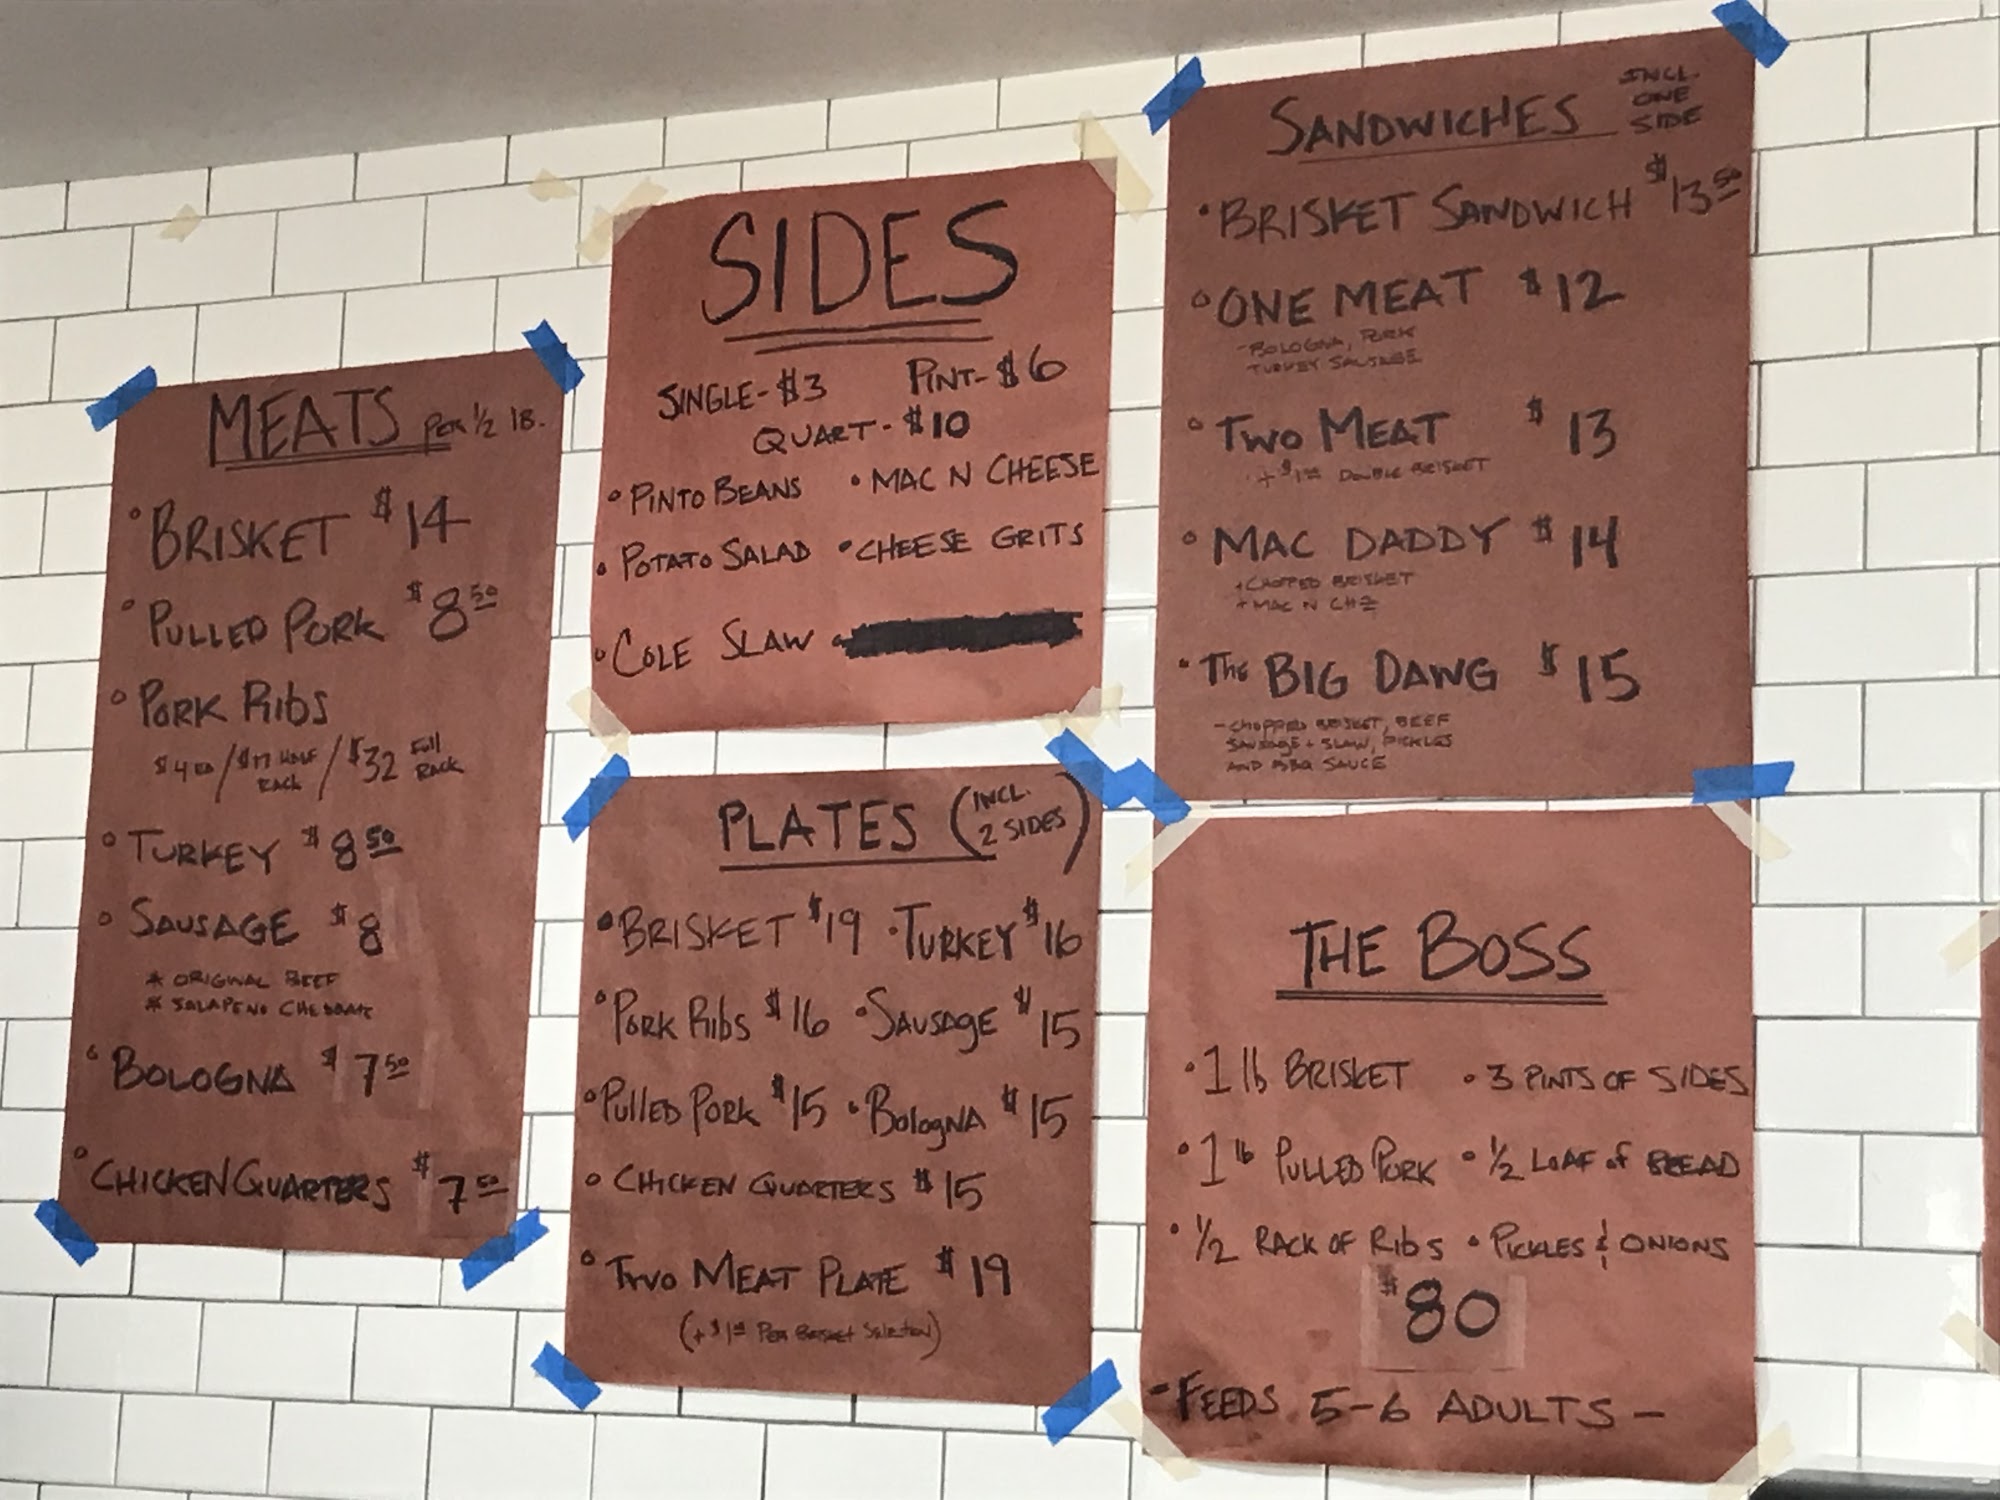 MEATS PER 1/2 LB.
BRISKET $14
PULLED PORK $8 50
PORK RIBS
$4 EA / $17 HALF RACK / $32 FULL RACK
TURKEY $8 50
SAUSAGE $8
* ORIGINAL BEEF
* JALAPENO CHEDDAR
BOLOGNA $7 50
CHICKEN QUARTERS $7 50
SIDES
SINGLE-$3 PINT-$6
QUART-$10
PINTO BEANS • MAC N CHEESE
POTATO SALAD • CHEESE GRITS
COLE SLAW
PLATES (INCL. 2 SIDES)
BRISKET $19 • TURKEY $16
PORK RIBS $16 • SAUSAGE $15
PULLED PORK $15 • BOLOGNA $15
CHICKEN QUARTERS $15
TWO MEAT PLATE $19
(+$1 00 PER BRISKET SELECTION)
SANDWICHES INCL. ONE SIDE
BRISKET SANDWICH $13 50
ONE MEAT $12
-BOLOGNA, PORK
TURKEY SAUSAGE
TWO MEAT $13
+$1 00 DOUBLE BRISKET
MAC DADDY $14
+CHOPPED BRISKET
+MAC N CHZ
THE BIG DAWG $15
-CHOPPED BRISKET, BEEF
SAUSAGE + SLAW, PICKLES
AND BBQ SAUCE
THE BOSS
• 1 lb BRISKET • 3 PINTS OF SIDES
• 1 lb PULLED PORK • 1/2 LOAF of BREAD
• 1/2 RACK OF RIBS • PICKLES & ONIONS
$80
-FEEDS 5-6 ADULTS-